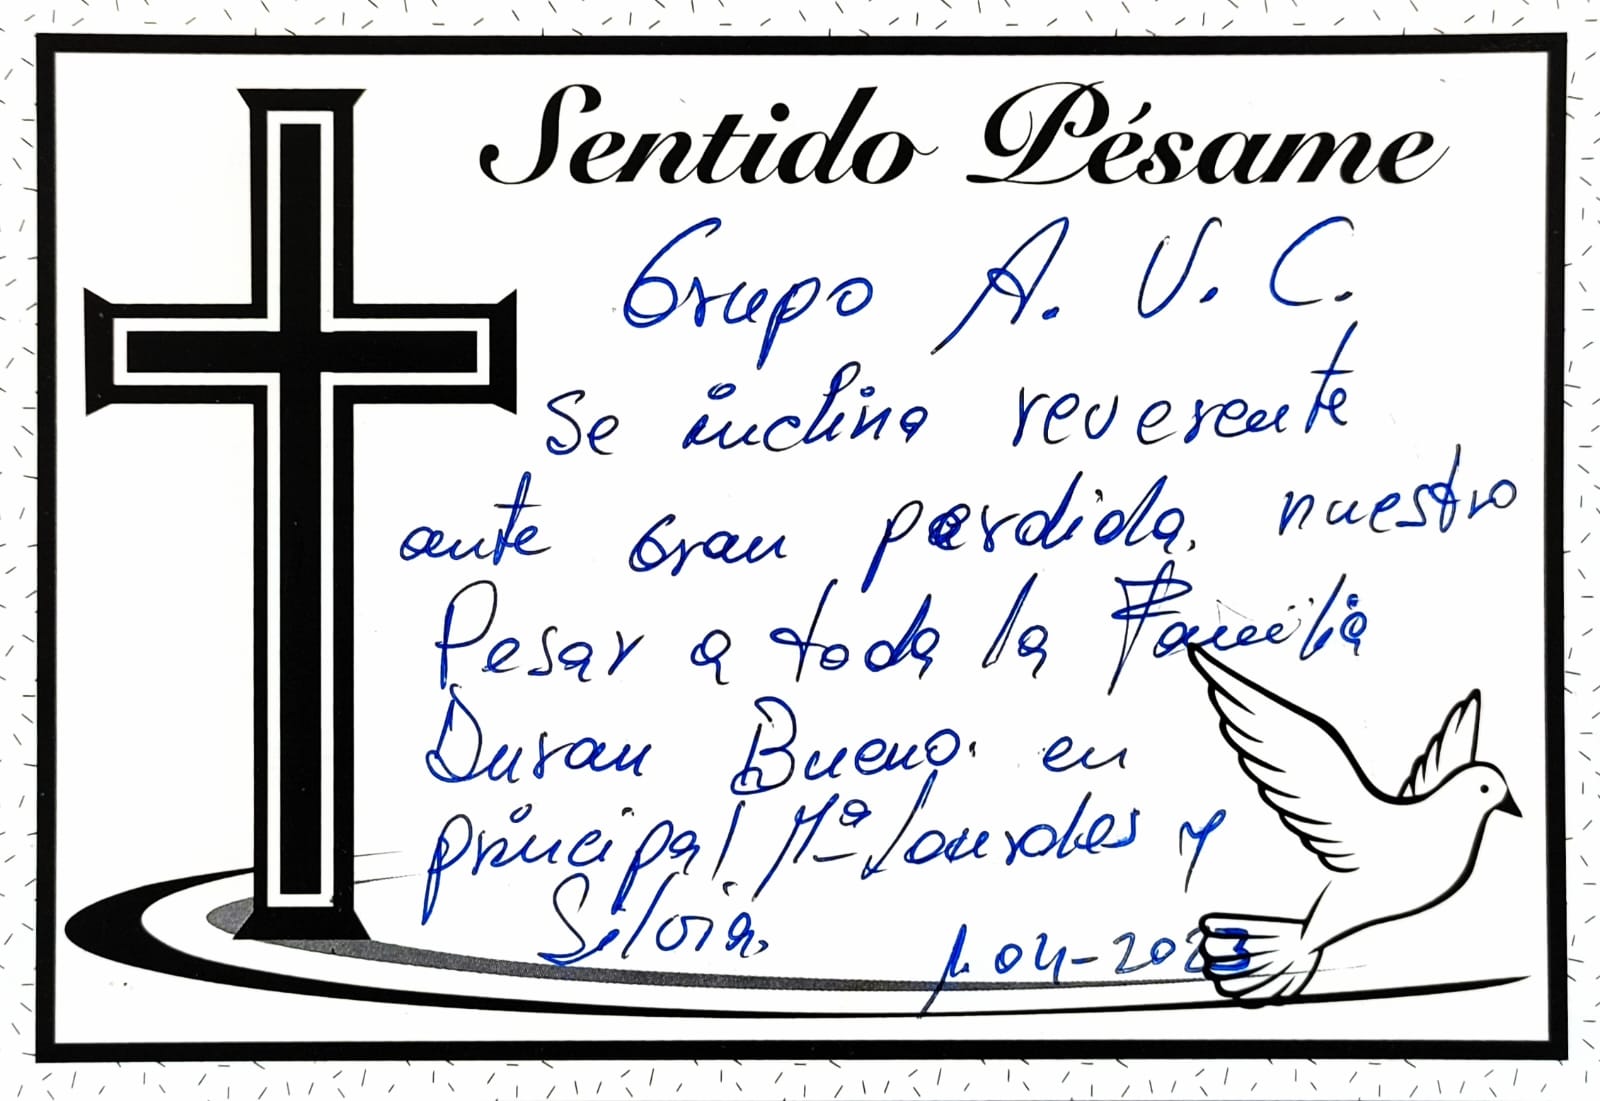 Sentido Pésame
Grupo A. V. C.
Se inclina reverente
ante Gran perdida, nuestro
Pesar a toda la Familia
Duran Bueno. en
principal Mª Lourdes y
Silvia.
1.04-2023